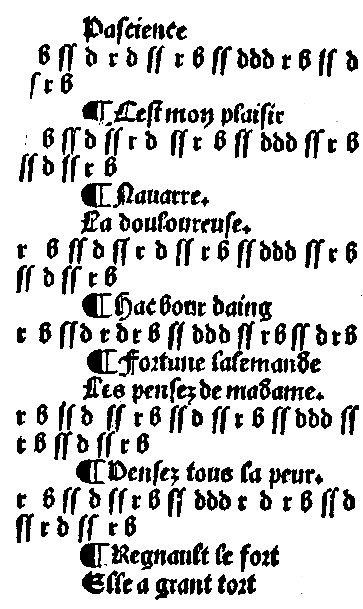 Pascience
b ss d r d ss r b ss ddd r b ss d
s r b
¶ Cest mon plaisir
b ss d ss r d ss r b ss ddd ss r b
ss d ss r b
¶ Nauarre.
La douloureuse.
r b ss d ss r d ss r b ss ddd ss r b
ss d ss r b
¶ Hacbour daing
r b ss d r d r b ss ddd ss r b ss d r b
¶ Fortune lalemande
Les pensez de madame.
r b ss d ss r b ss d ss r b ss ddd ss
r b ss d ss r b
¶ Pensez tous la peur.
r b ss d ss r b ss ddd r d r b ss d
ss r d ss r b
¶ Regnault le fort
Elle a grant tort